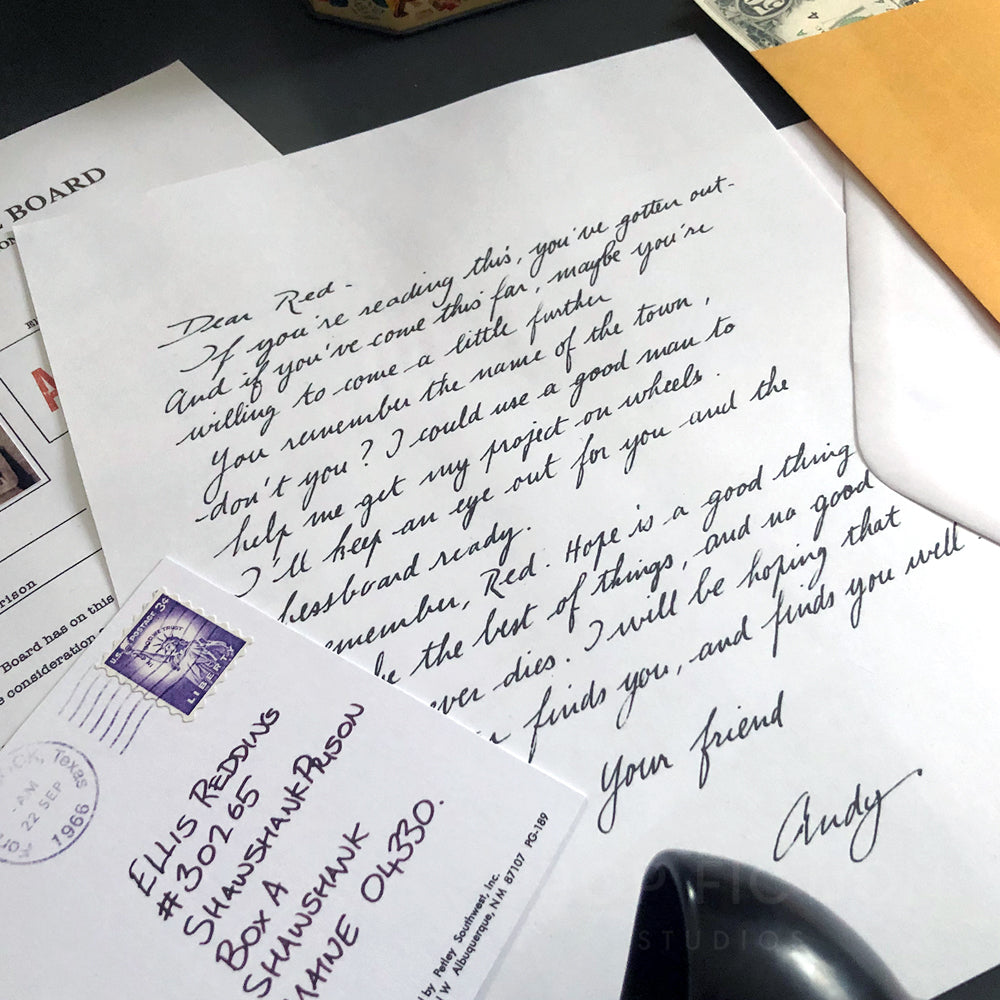 BOARD
Dear Red.
If you're reading this, you've gotten out-
And if you've come this far, maybe you're
willing to come a little further
You remember the name of the town,
don't you? I could use a good man to
help me get my project on wheels.
I'll keep an eye out for you and the
hessboard ready.
emember, Red. Hope is a good thing
the best of things, and no good
ever dies. I will be hoping that
finds you, and finds you well.
Your friend
Andy
rison
Board has on this
consideration
U.S. POSTAGE 3¢
IN GOD WE TRUST
LIBERTY
Texas
AM
22 SEP
1966
ELLIS REDDING
#30265
SHAWSHANK PRISON
BOX A
SHAWSHANK
MAINE 04330.
by Petley Southwest, Inc.
W Albuquerque, N M 87107 PG-189
STUDIOS